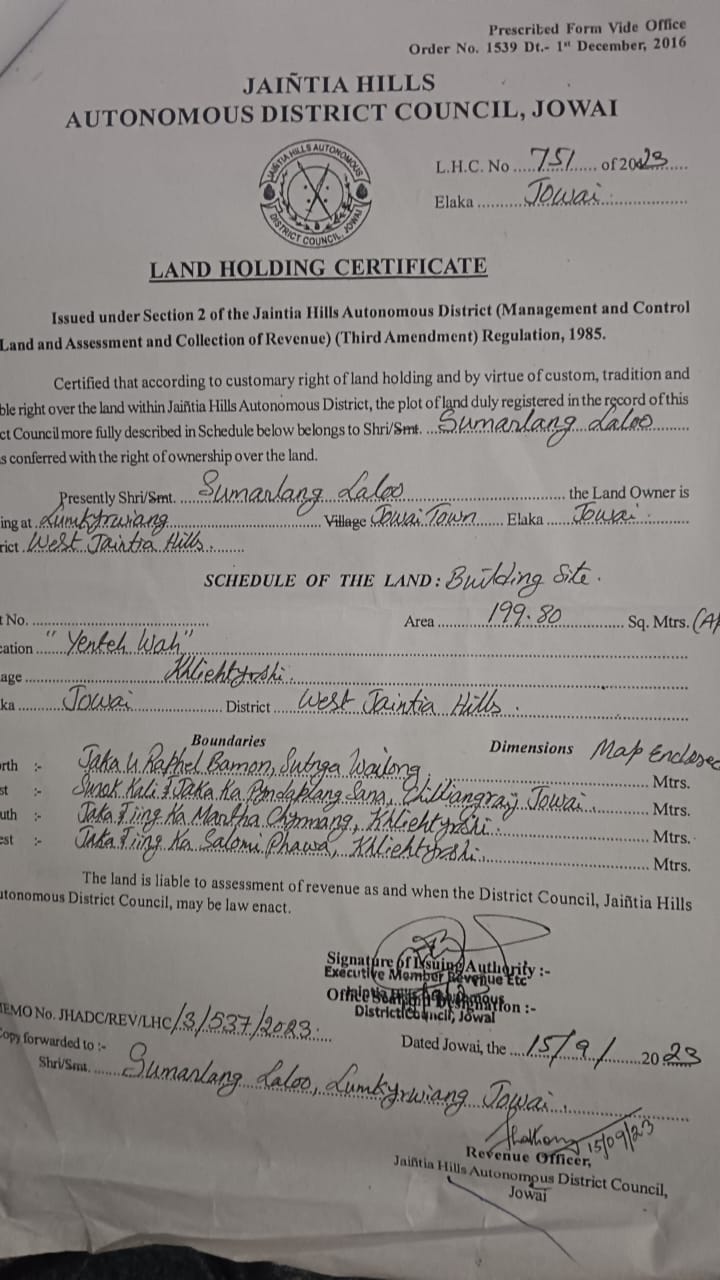 Prescribed Form Vide Office
Order No. 1539 Dt.- 1st December, 2016
JAIÑTIA HILLS
AUTONOMOUS DISTRICT COUNCIL, JOWAI
JAIÑTIA HILLS AUTONOMOUS
DISTRICT COUNCIL, JOWAI
L.H.C. No ..... 751 ...... of 2023
Elaka .......... Jowai ..................
LAND HOLDING CERTIFICATE
Issued under Section 2 of the Jaintia Hills Autonomous District (Management and Control
Land and Assessment and Collection of Revenue) (Third Amendment) Regulation, 1985.
Certified that according to customary right of land holding and by virtue of custom, tradition and
ble right over the land within Jaiñtia Hills Autonomous District, the plot of land duly registered in the record of this
ct Council more fully described in Schedule below belongs to Shri/Smt. ... Sumarlang Laloo .........
s conferred with the right of ownership over the land.
Presently Shri/Smt. .... Sumarlang Laloo .................... the Land Owner is
ing at . Lumkyrwiang .................... Village Jowai Town ...... Elaka ..... Jowai ..........
rict . West Jaintia Hills. .......
SCHEDULE OF THE LAND : Building Site.
t No. ........................................ Area ............ 199.80 ............... Sq. Mtrs.
cation ....... "Yenteh Wah" ........................................
age .............................. Khliehtyrshi. ..............................
ka .......... Jowai .................... District ..... West Jaintia Hills. ....................
Boundaries Dimensions Map Enclosed
rth :- Jaka U Raphel Bamon, Sutnga Wailong, .................... Mtrs.
st :- Surok Kali & Jaka Ka Pyndaplang Sana, Chilliangraij Jowai .......... Mtrs.
uth :- Jaka Tiing Ka Mantha Chyrmang, Khliehtyrshi. .................... Mtrs.
est :- Jaka Tiing Ka Salomi Phawa, Khliehtyrshi. .................... Mtrs.
The land is liable to assessment of revenue as and when the District Council, Jaiñtia Hills
utonomous District Council, may be law enact.
Signature of Issuing Authority :-
Executive Member Revenue Etc
District Council, Jowai
MEMO No. JHADC/REV/LHC/3/537/2023.
Dated Jowai, the .... 15/9/ ........ 2023
Copy forwarded to :-
Shri/Smt. ....... Sumarlang Laloo, Lumkyrwiang Jowai. ....................
15/09/23
Revenue Officer,
Jaiñtia Hills Autonomous District Council,
Jowai